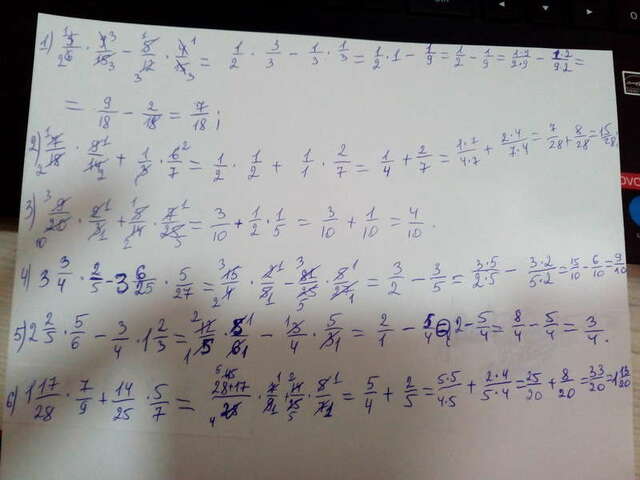 1) 5/6 · 9/15 − 8/12 · 4/15 = 1/2 · 3/3 − 1/3 · 1/3 = 1/2 · 1 − 1/9 = 1/2 − 1/9 = 1·9/2·9 − 1·2/9·2 =
= 9/18 − 2/18 = 7/18;
2) 7/18 · 9/14 + 1/3 · 6/7 = 1/2 · 1/2 + 1/1 · 2/7 = 1/4 + 2/7 = 1·7/4·7 + 2·4/7·4 = 7/28 + 8/28 = 15/28;
3) 9/20 · 2/3 + 8/14 · 7/25 = 3/10 + 1/2 · 1/5 = 3/10 + 1/10 = 4/10.
4) 3 3/4 · 2/5 − 3 6/25 · 5/27 = 15/4 · 2/5 − 81/25 · 5/27 = 3/2 − 3/5 = 3·5/2·5 − 3·2/5·2 = 15/10 − 6/10 = 9/10
5) 2 2/5 · 5/6 − 3/4 · 1 2/3 = 12/5 · 5/6 − 3/4 · 5/3 = 2/1 − 5/4 = 2 − 5/4 = 8/4 − 5/4 = 3/4.
6) 1 17/28 · 7/9 + 14/25 · 5/7 = 28+17/28 · 7/9 + 14/25 · 5/7 = 5/4 + 2/5 = 5·5/4·5 + 2·4/5·4 = 25/20 + 8/20 = 33/20 = 1 13/20